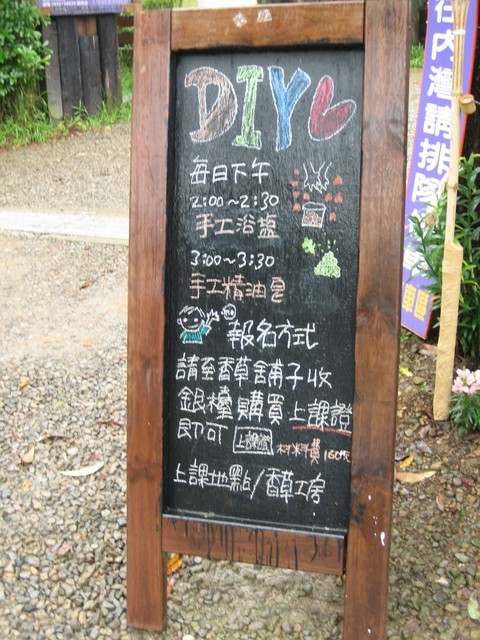 DIY
每日下午
2:00～2:30
手工浴鹽
3:00～3:30
手工精油皂
報名方式
請至香草舖子收
銀檯購買上課證
即可 上課證 材料費160元
上課地點/香草工房
在內灣請排隊